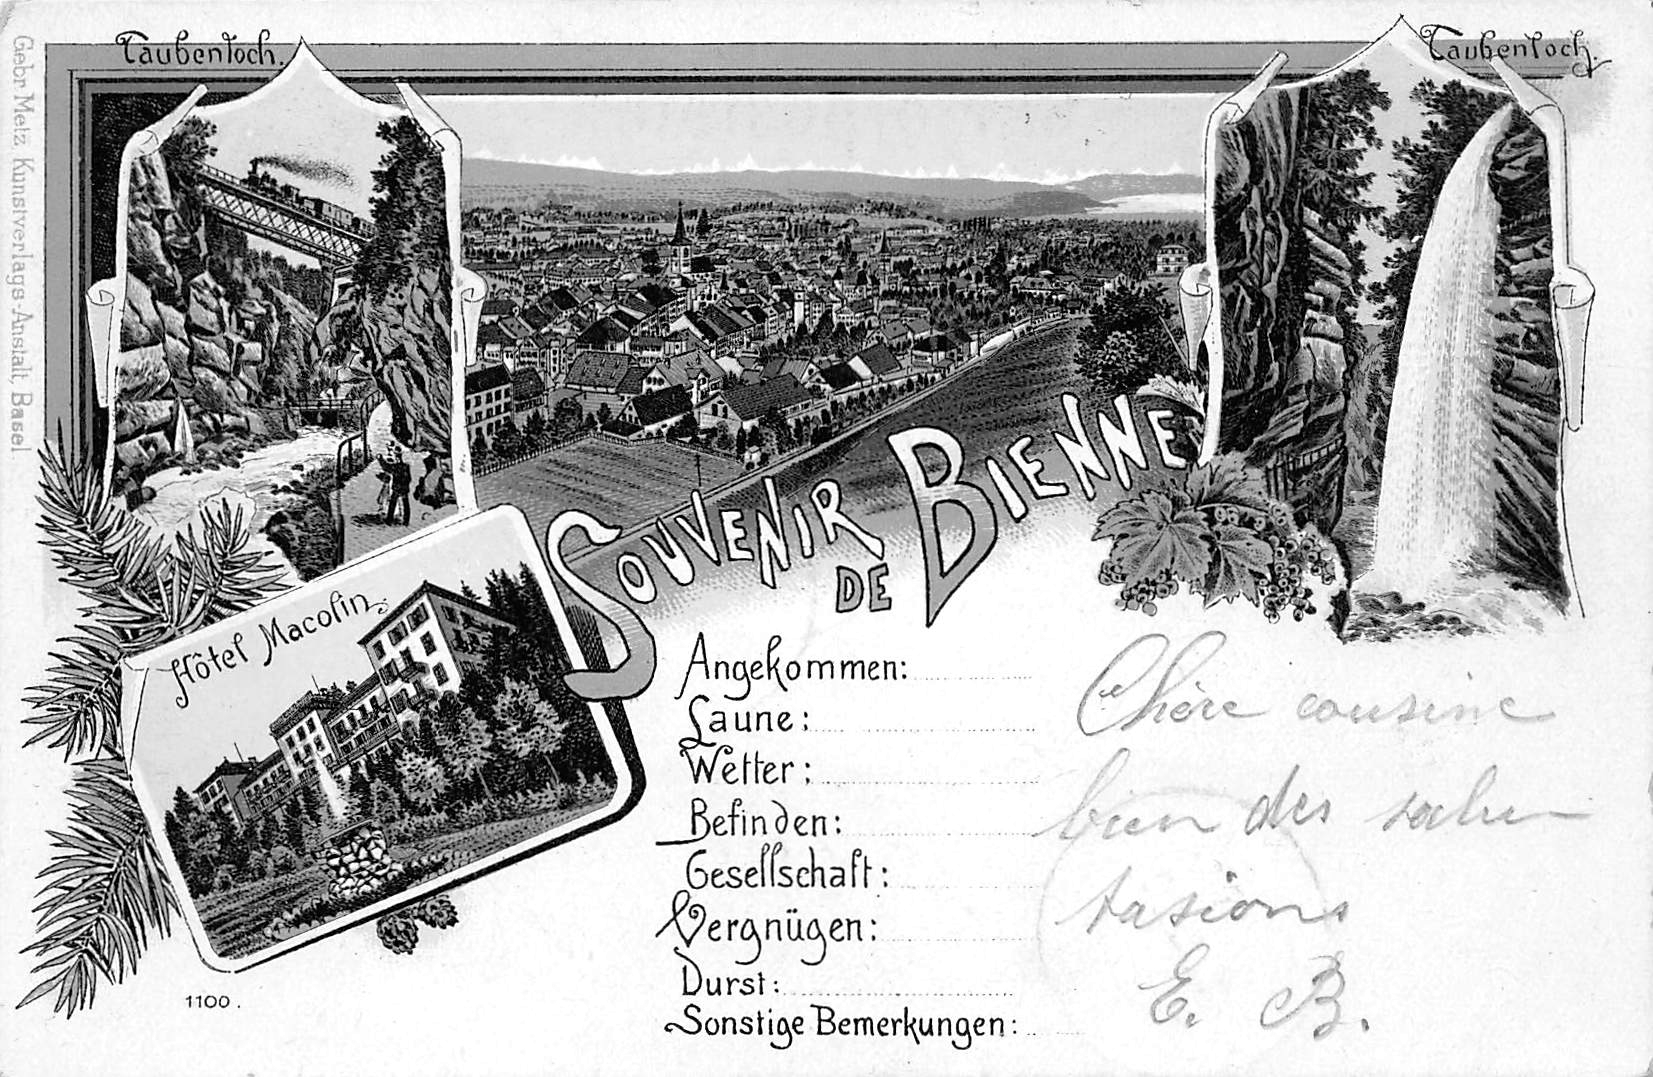 Taubenloch.
Taubenloch.
Gebr. Metz Kunstverlags-Anstalt, Basel
Hôtel Macolin.
SOUVENIR
DE
BIENNE
Angekommen:
Laune:
Wetter:
Befinden:
Gesellschaft:
Vergnügen:
Durst:
Sonstige Bemerkungen:
Chère cousine
bien des salu
tasions
E. B.
1100.